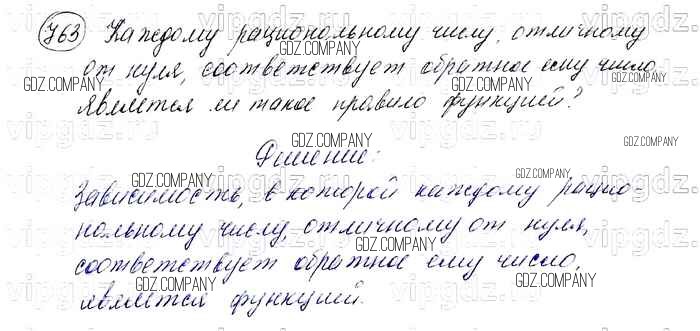 763 Каждому рациональному числу, отличному
от нуля, соответствует обратное ему число.
Является ли такое правило функцией?
Решение:
Зависимость, в которой каждому рацио-
нальному числу, отличному от нуля,
соответствует обратное ему число,
является функцией.